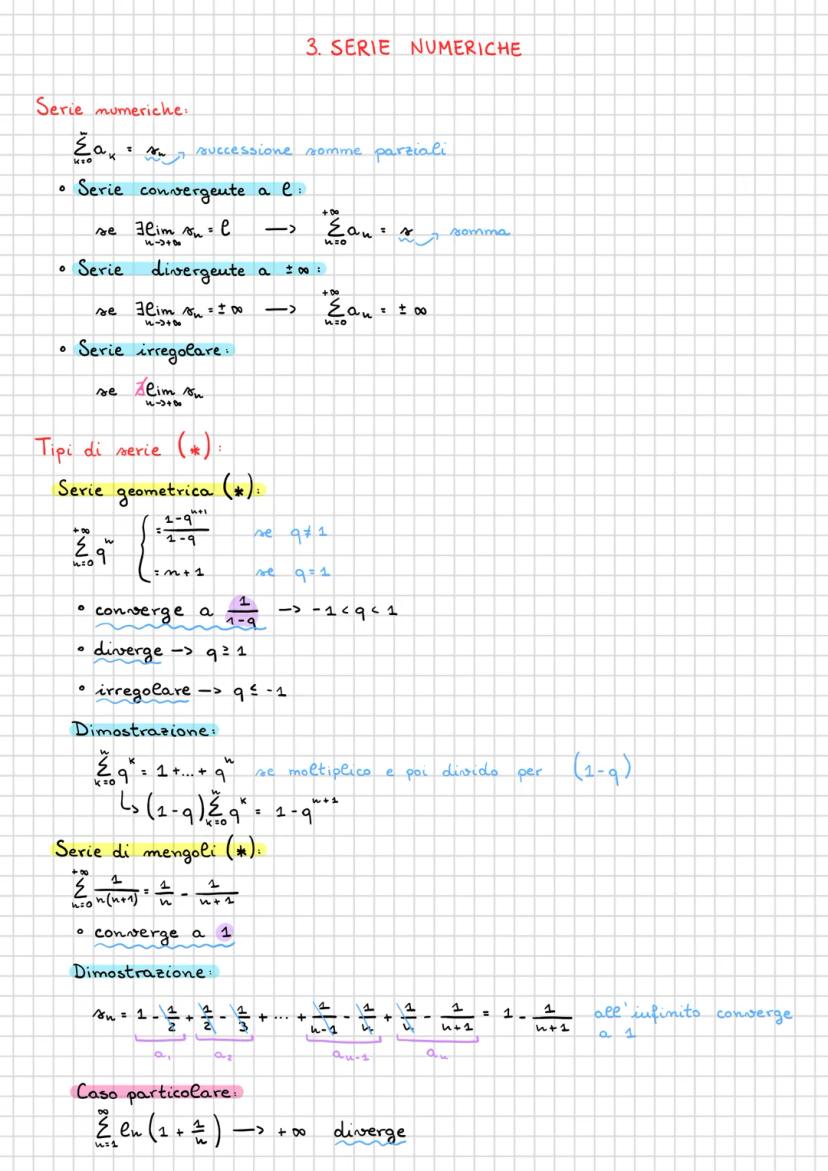 3. SERIE NUMERICHE
Serie numeriche:
n Σ k=0 a_k = s_n → successione somme parziali
• Serie convergente a l:
se ∃ lim n->+∞ s_n = l —> +∞ Σ n=0 a_n = s → somma
• Serie divergente a ±∞:
se ∃ lim n->+∞ s_n = ±∞ —> +∞ Σ n=0 a_n = ±∞
• Serie irregolare:
se ∄ lim n->+∞ s_n
Tipi di serie (*):
Serie geometrica (*):
+∞ Σ n=0 q^n { = (1-q^(n+1))/(1-q) se q≠1
= n+1 se q=1
• converge a 1/(1-q) -> -1<q<1
• diverge -> q≥1
• irregolare -> q≤-1
Dimostrazione:
n Σ k=0 q^k = 1+...+q^n se moltiplico e poi divido per (1-q)
↳ (1-q) n Σ k=0 q^k = 1-q^(n+1)
Serie di mengoli (*):
+∞ Σ n=0 1/(n(n+1)) = 1/n - 1/(n+1)
• converge a 1
Dimostrazione:
s_n = 1 - 1/2 + 1/2 - 1/3 + ... + 1/(n-1) - 1/n + 1/n - 1/(n+1) = 1 - 1/(n+1) all'infinito converge
a 1
a_1 a_2 a_(n-1) a_n
Caso particolare:
∞ Σ n=1 ln(1 + 1/n) —> +∞ diverge